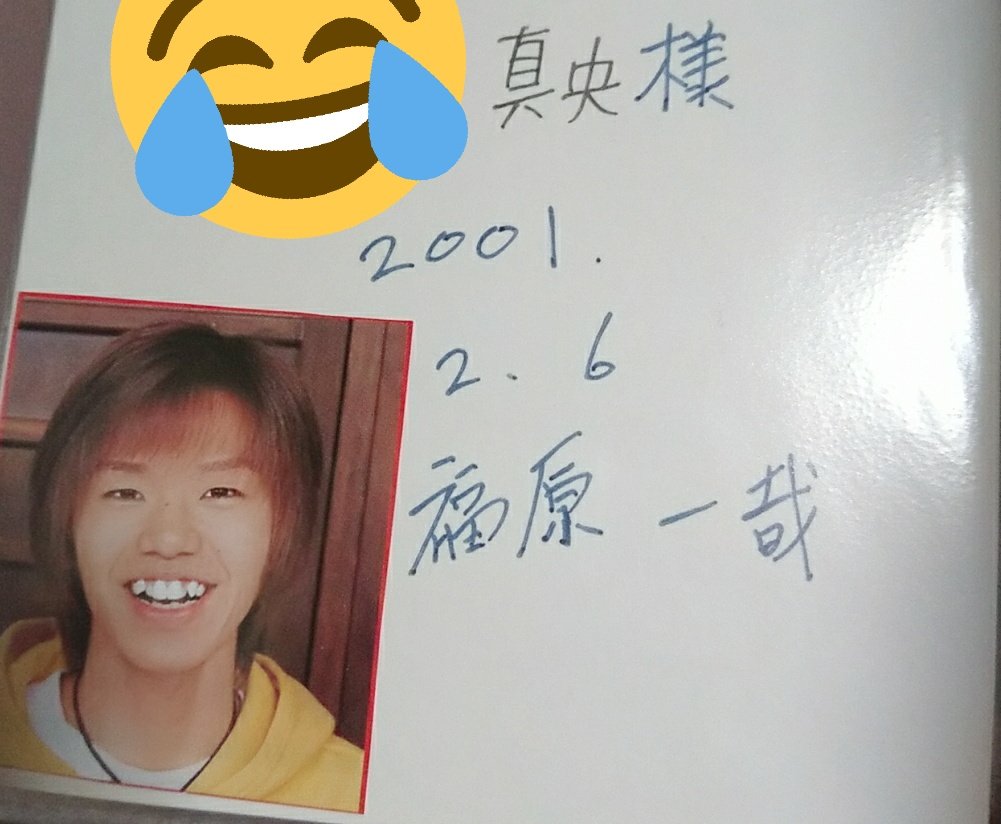 真央様
2001.
2. 6
福原 一哉